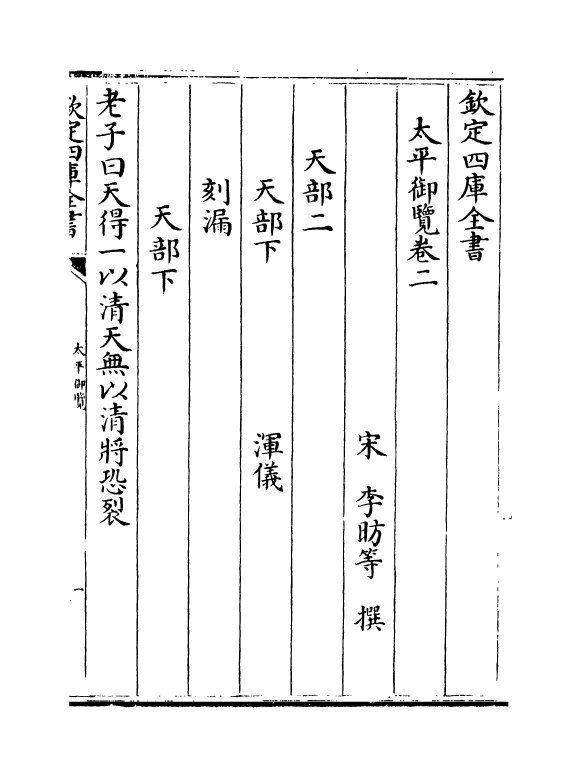 欽定四庫全書
太平御覽卷二
宋　李昉等　撰
天部二
天部下　渾儀
刻漏
天部下
老子曰天得一以清天無以清將恐裂
欽定四庫全書
太平御覽
一